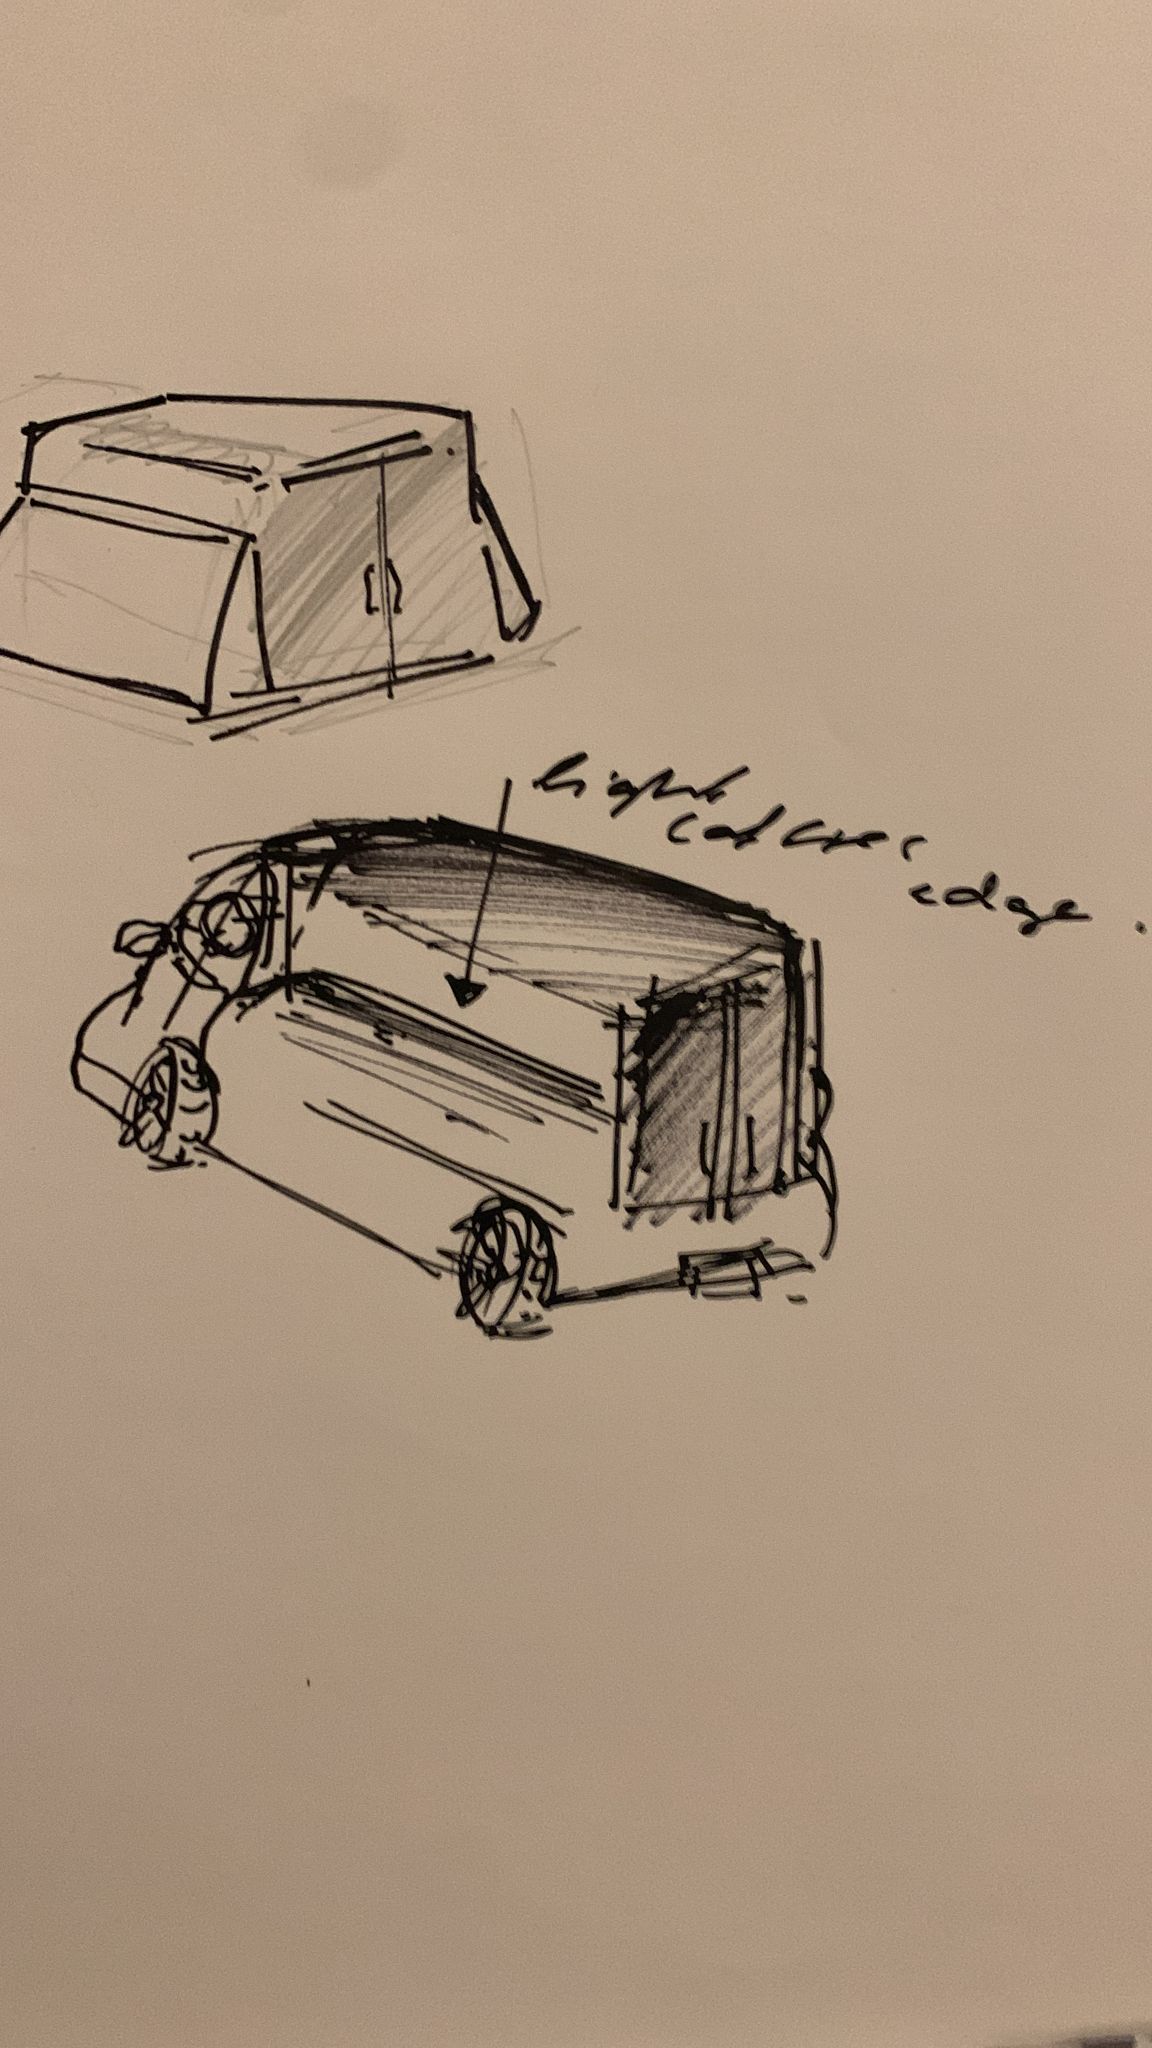 light
catches
edge.